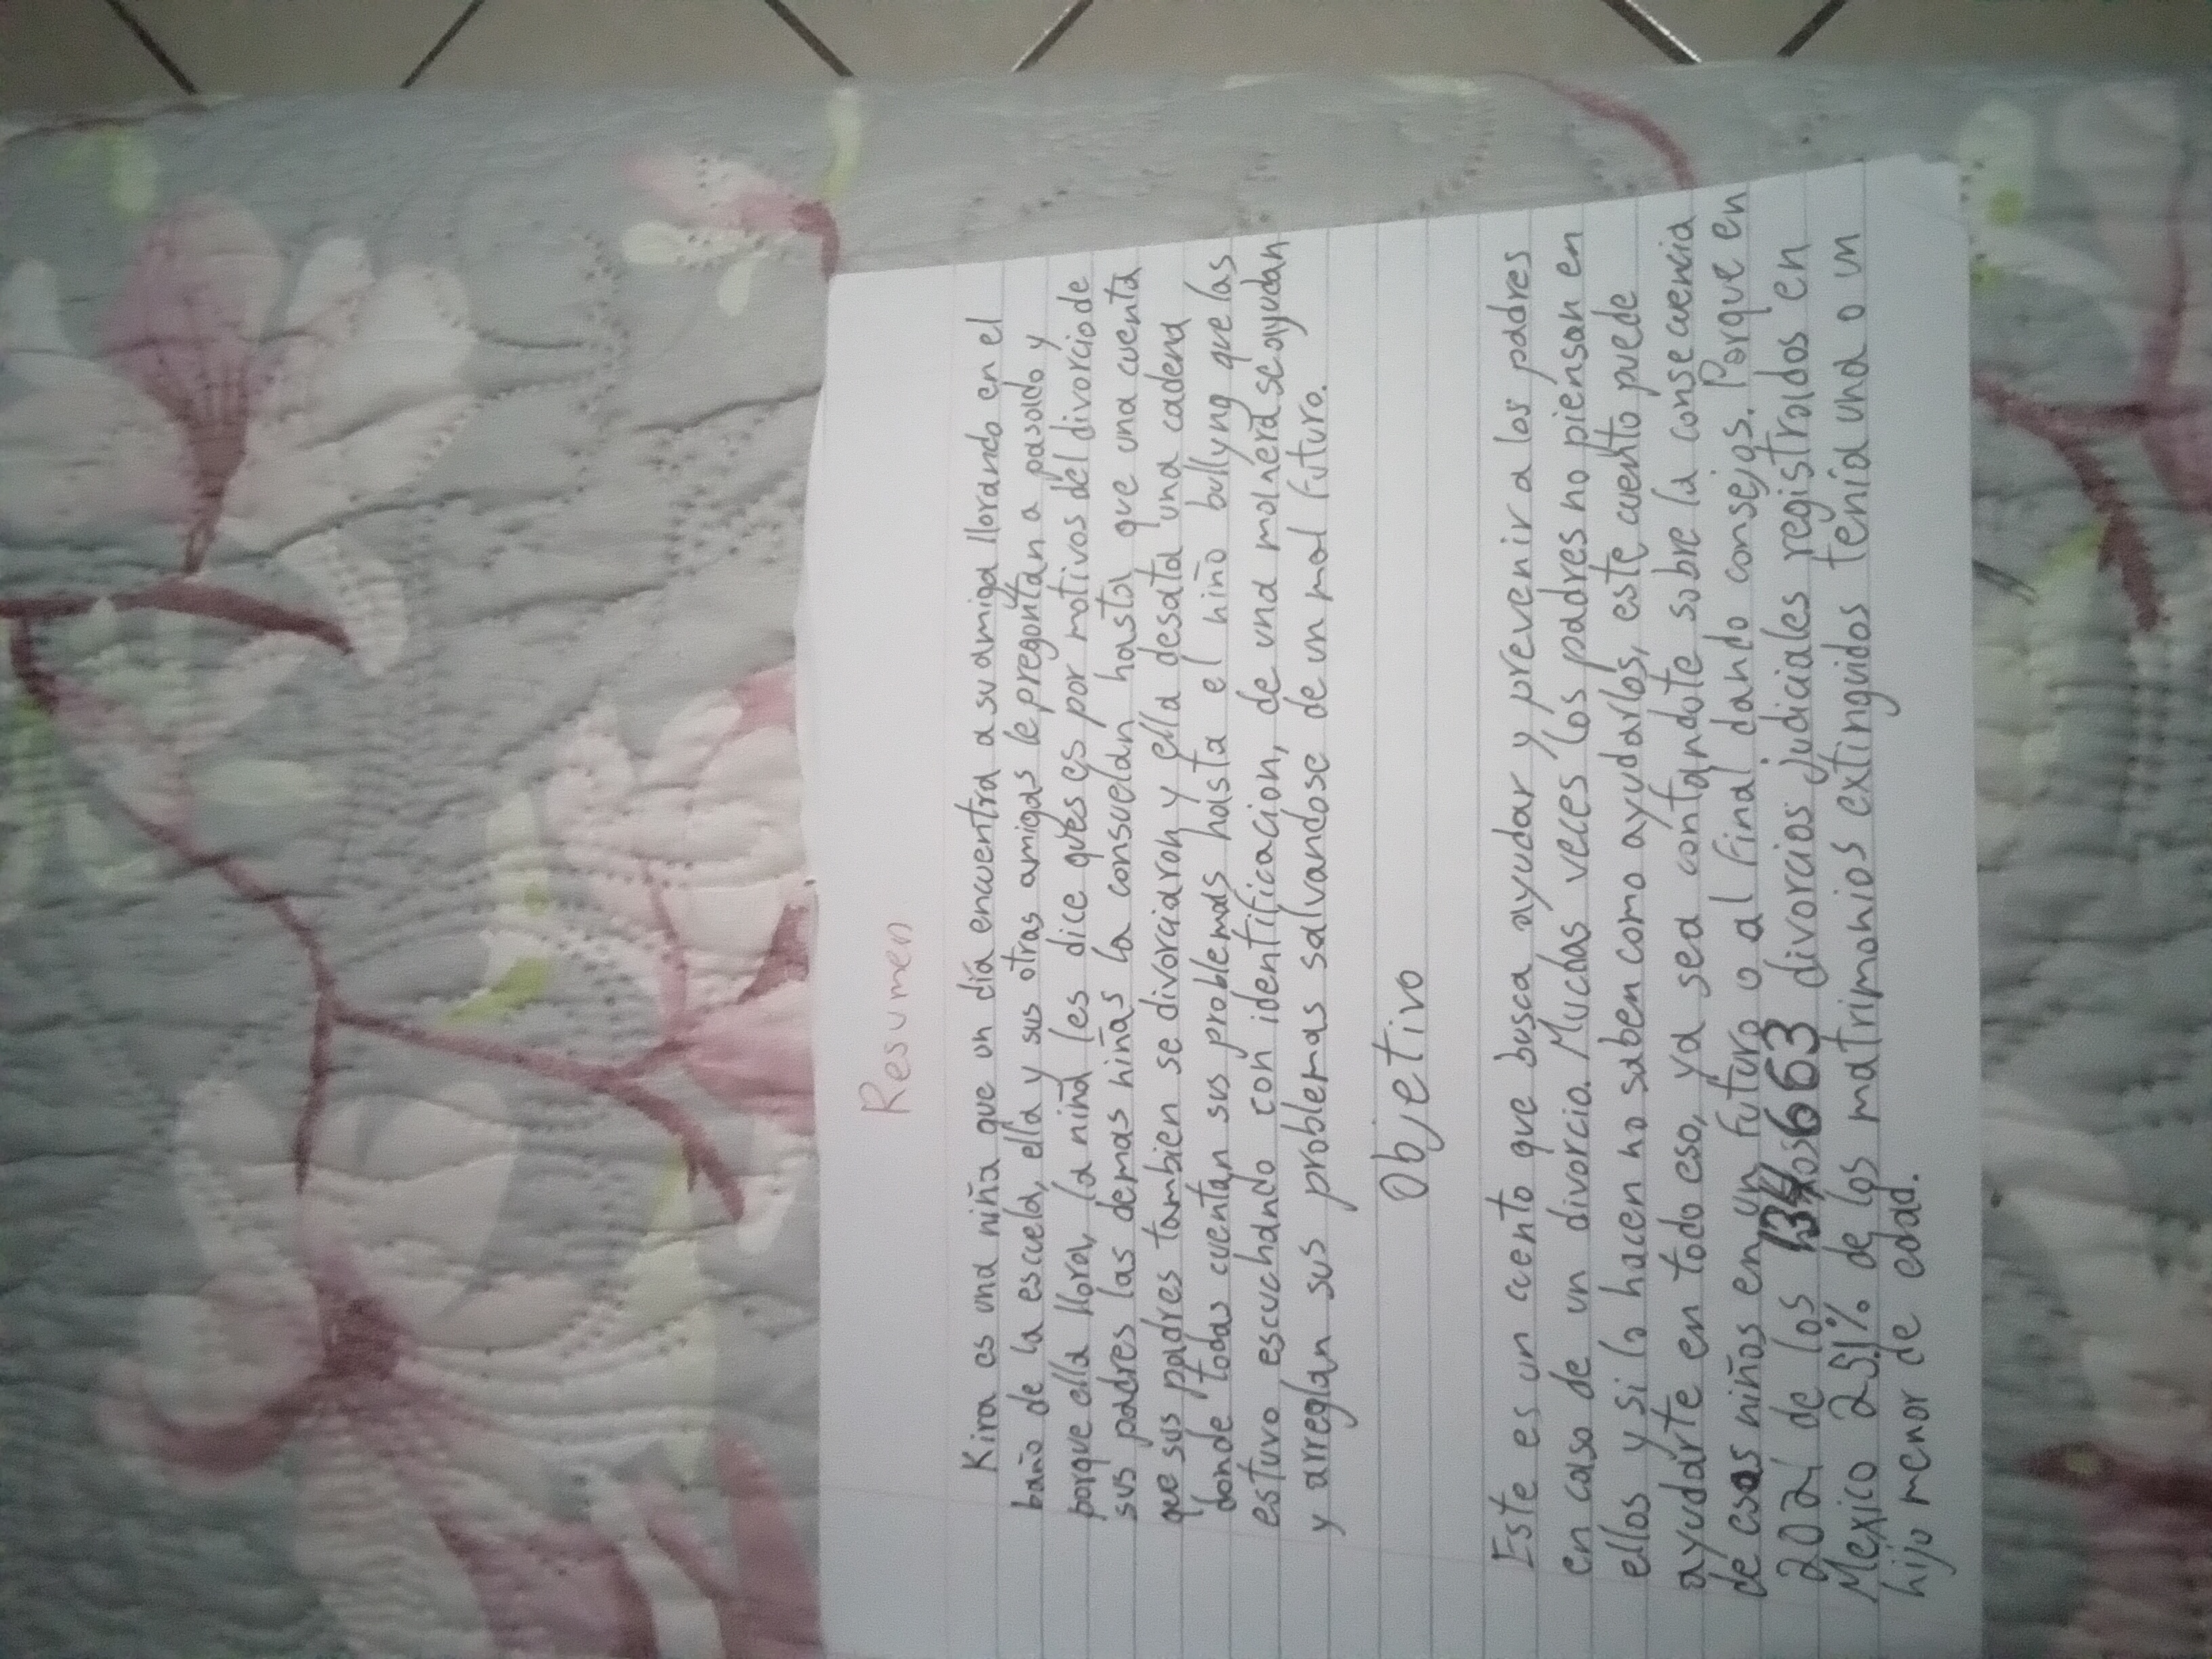 Resumen
Kira es una niña que un día encuentra a su amiga llorando en el
baño de la escuela, ella y sus otras amigas le pregontan a pasado y
porque ella llora, la niña les dice qués es por motivos del divorcio de
sus padres las demas niñas la consuelan hasta que una cuenta
que sus padres tambien se divorciaron y ella desata una cadena
donde todas cuentan sus problemas hasta el niño bullyng que las
estuvo escuchando con identificacion, de una malnera se ayudan
y arreglan sus problemas salvandose de un mal futuro.
Objetivo
Este es un cuento que busca ayudar y prevenir a los padres
en caso de un divorcio. Muchas veces los padres no piensan en
ellos y si lo hacen no saben como ayudarlos, este cuento puede
ayudarte en todo eso, ya sea contandote sobre la consecuencia
de esos niños en un futuro o al final dando consejos. Porque en
2021 de los 134 663 divorcios judiciales registrados en
Mexico 25.1% de los matrimonios extinguidos tenia una o un
hijo menor de edad.